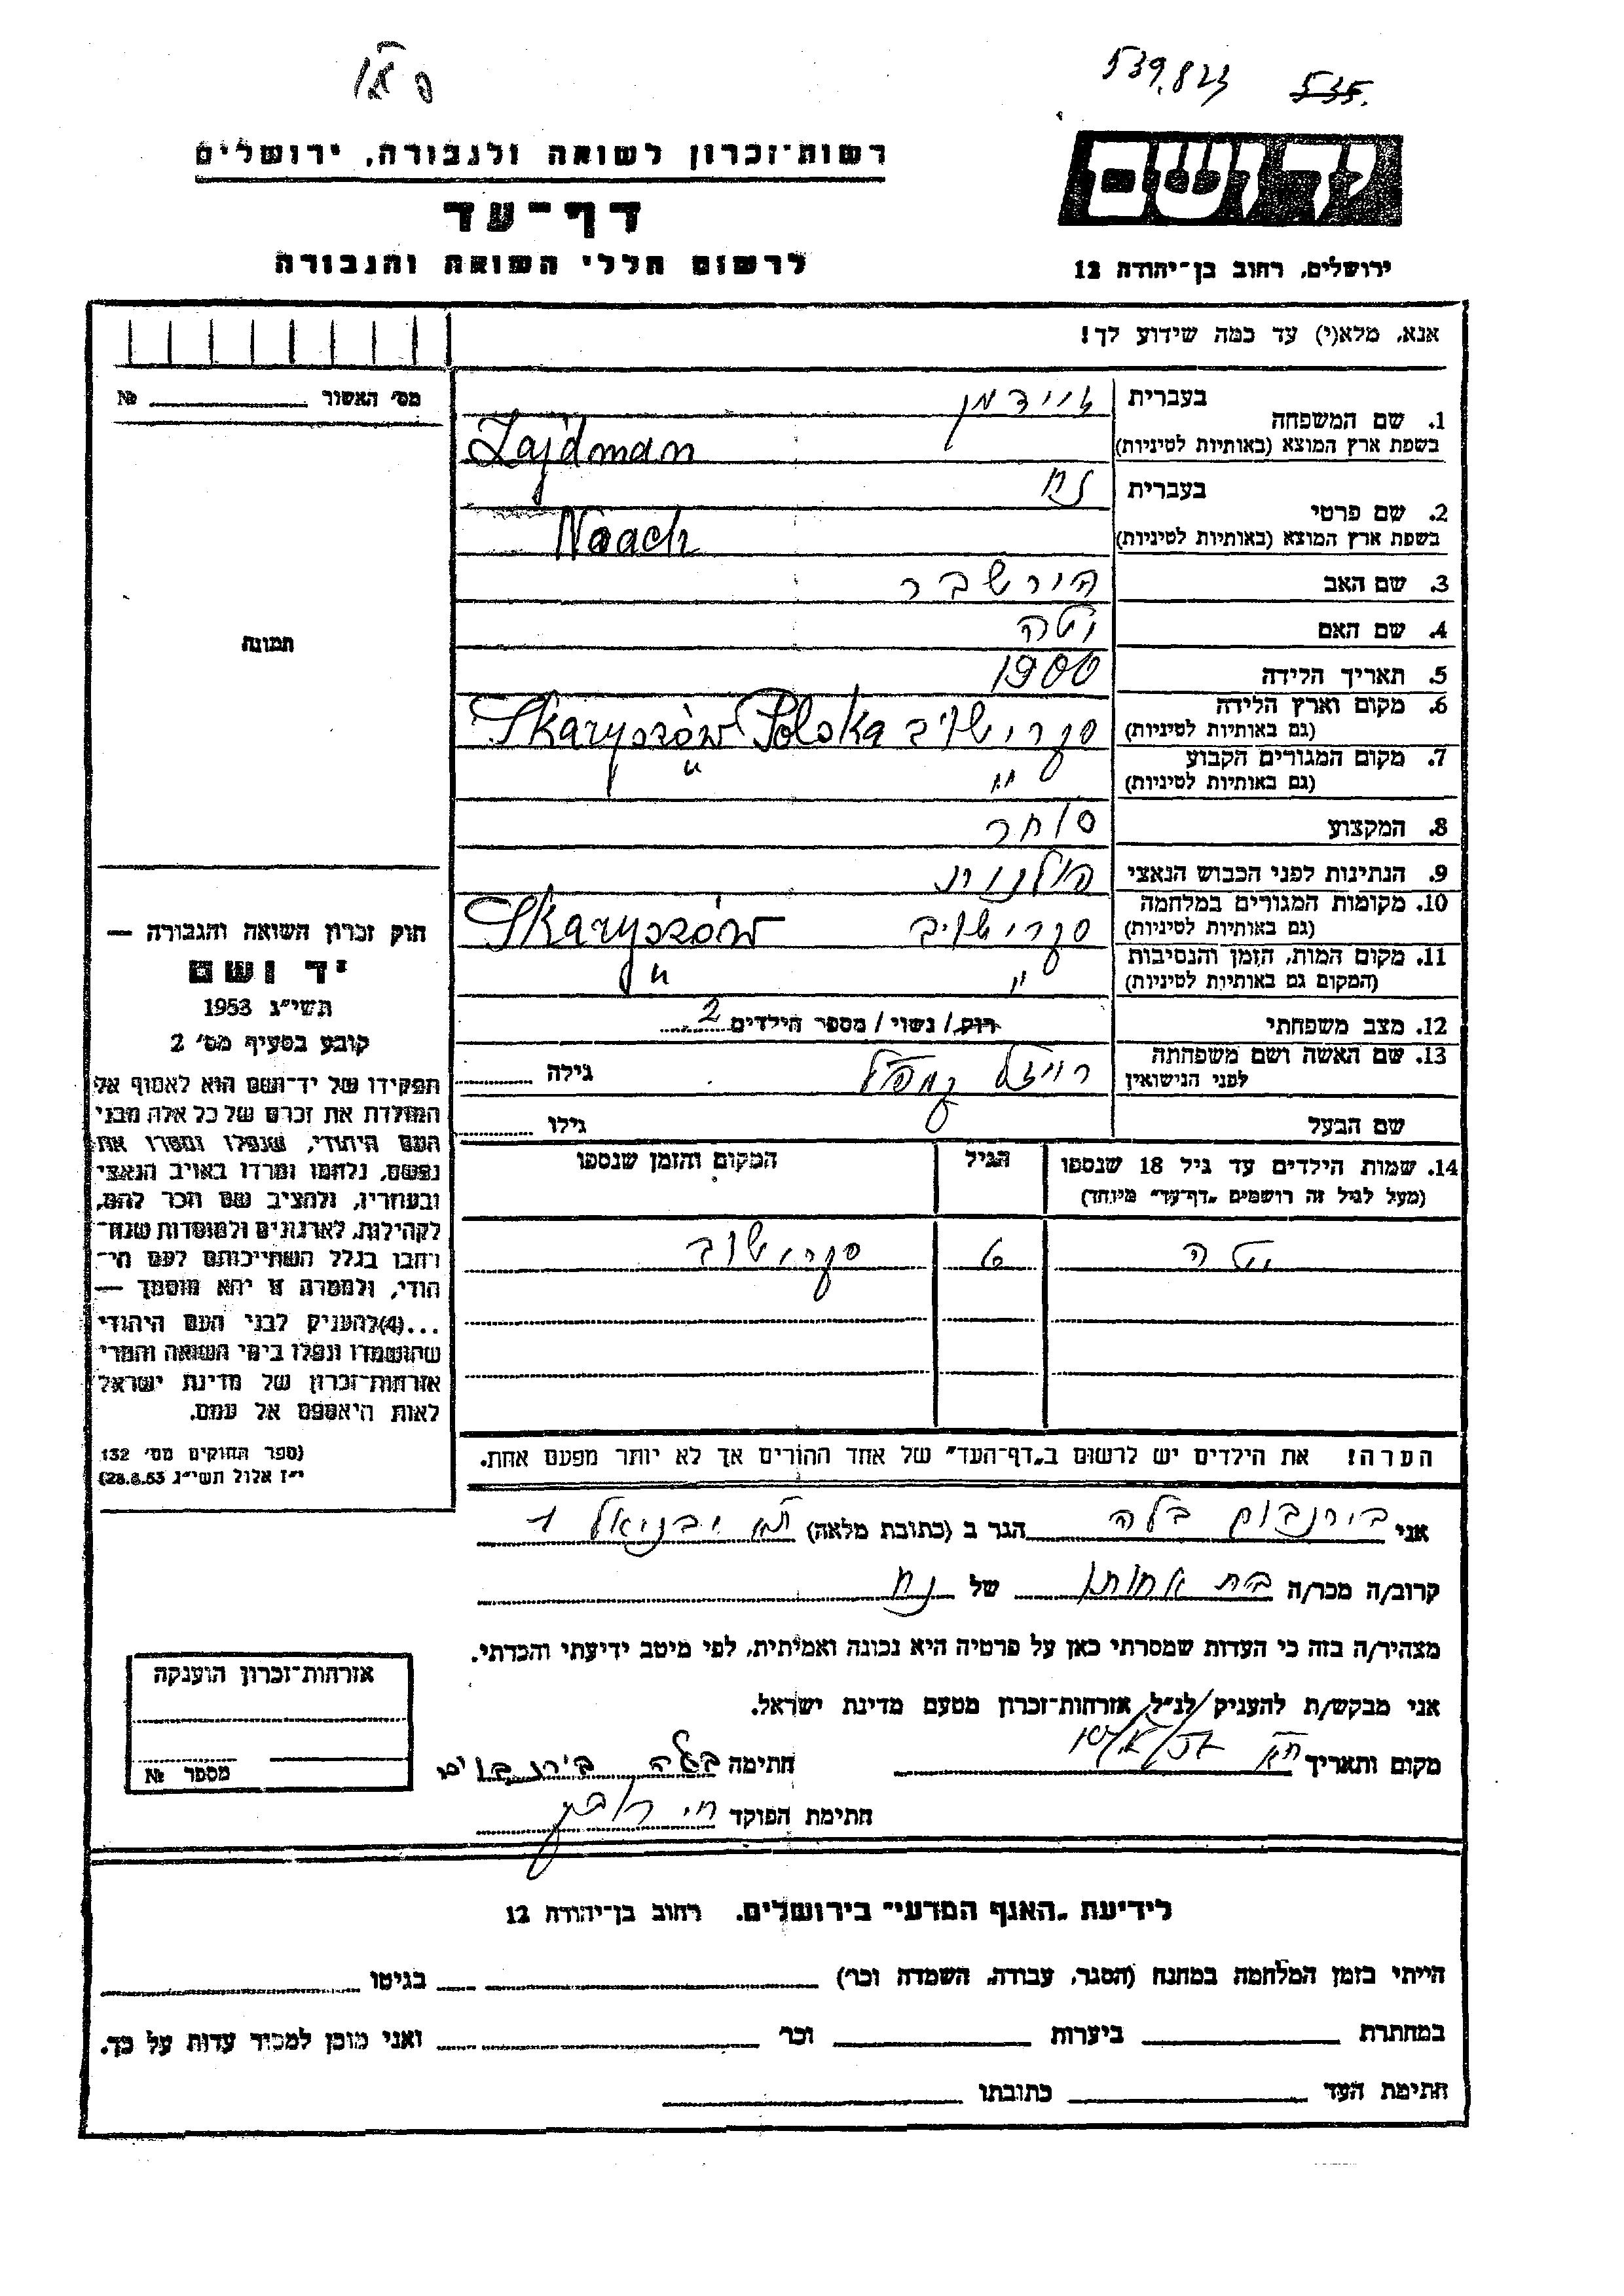 539.823 535.
רשות־זכרון לשואה ולגבורה, ירושלים
יד ושם
דף־עד
לרשום חללי השואה והגבורה
ירושלים, רחוב בן־יהודה 12
אנא, מלא(י) עד כמה שידוע לך!
מס׳ האשור № 
1. שם המשפחה
בעברית זיידמן
בשפת ארץ המוצא (באותיות לטיניות) Zajdman
2. שם פרטי
בעברית נח
בשפת ארץ המוצא (באותיות לטיניות) Noach
3. שם האב הירשבר
4. שם האם יטה
5. תאריך הלידה 1900
6. מקום וארץ הלידה (גם באותיות לטיניות) סקרישוב Skaryszów Polska
7. מקום המגורים הקבוע (גם באותיות לטיניות) " "
8. המקצוע סוחר
9. הנתינות לפני הכבוש הנאצי פולנית
10. מקומות המגורים במלחמה (גם באותיות לטיניות) סקרישוב Skaryszów
11. מקום המות, הזמן והנסיבות (המקום גם באותיות לטיניות) " "
12. מצב משפחתי רווק / נשוי / מספר הילדים 2
13. שם האשה ושם משפחתה לפני הנישואין רויזל גילה
שם הבעל גילו
14. שמות הילדים עד גיל 18 שנספו הגיל המקום והזמן שנספו
(מעל לגיל זה רושמים „דף־עד״ מיוחד)
יטה 6 סקרישוב
הערה! את הילדים יש לרשום ב„דף־העד״ של אחד ההורים אך לא יותר מפעם אחת.
תמונה
חוק זכרון השואה והגבורה —
יד ושם
תשי״ג 1953
קובע בסעיף מס׳ 2
תפקידו של יד־ושם הוא לאסוף אל
המולדת את זכרם של כל אלה מבני
העם היהודי, שנפלו ומסרו את
נפשם, נלחמו ומרדו באויב הנאצי
ובעוזריו, ולהציב שם וזכר להם,
לקהילות, לארגונים ולמוסדות שנח־
רבו בגלל השתייכותם לעם הי־
הודי, ולמטרה זו יהא מוסמך —
...(4)להעניק לבני העם היהודי
שהושמדו ונפלו בימי השואה והמרי
אזרחות־זכרון של מדינת ישראל
לאות היאספם אל עמם.
(ספר החוקים מס׳ 132
י״ז אלול תשי״ג 28.8.53)
אני בירנבוים בלה הגר ב (כתובת מלאה) ת״א יבניאל 1
קרוב/ה מכר/ה בת אחותו של נח
מצהיר/ה בזה כי העדות שמסרתי כאן על פרטיה היא נכונה ואמיתית, לפי מיטב ידיעתי והכרתי.
אני מבקש/ת להעניק לנ״ל אזרחות־זכרון מטעם מדינת ישראל.
מקום ותאריך ת״א חתימה בלה בירנבוים
חתימת הפוקד
אזרחות־זכרון הוענקה
מספר №
לידיעת „האגף המדעי״ בירושלים, רחוב בן־יהודה 12
הייתי בזמן המלחמה במחנה (הסגר, עבודה, השמדה וכו׳) בגיטו
במחתרת ביערות וכו׳ ואני מוכן למסור עדות על כך.
חתימת העד כתובתו